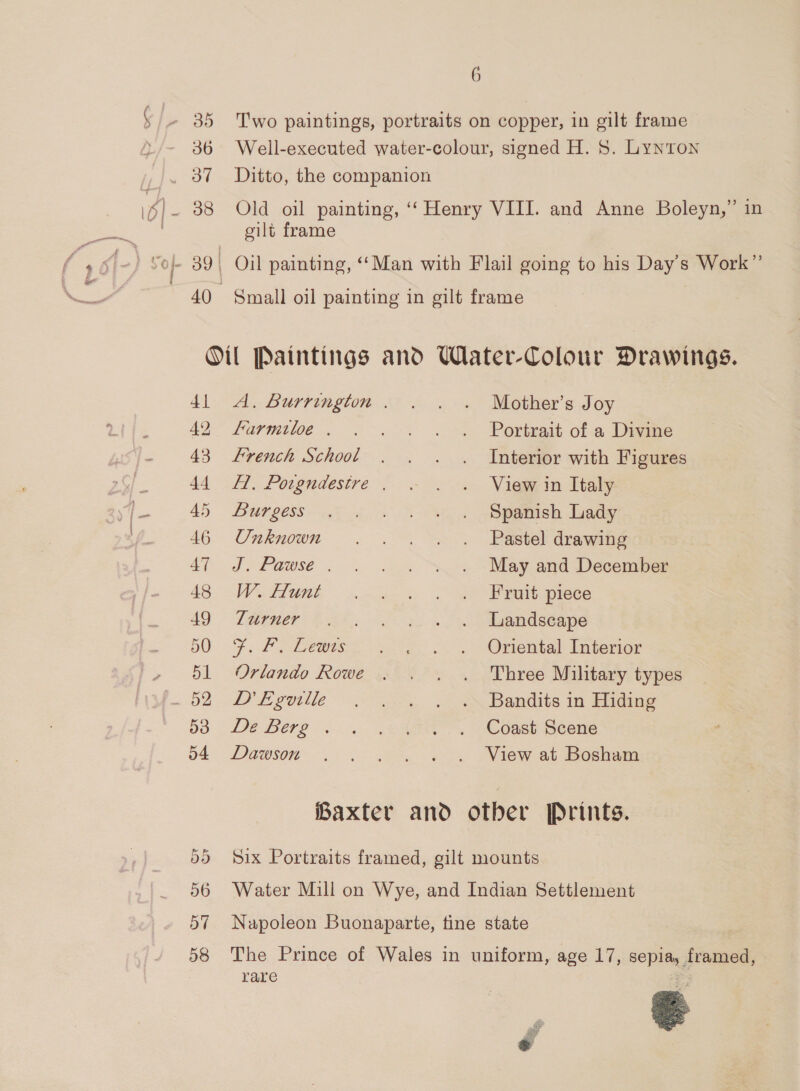 6
35 Two paintings, portraits on copper, in gilt frame
36 Well-executed water-colour, signed H. S. Lynton
37 Ditto, the companion
38 Old oil painting, “Henry VIII. and Anne Boleyn,” in
gilt frame
39 Oil painting, “Man with Flail going to his Day's Work”
40 Small oil painting in gilt frame
Oil Paintings and Water-Colour Drawings.
41 A. Burrington . . . . Mother's Joy
42 Farmiloe . . . . . . Portrait of a Divine
43 French School . . . . Interior with Figures
44 H. Poigndestre . . . . View in Italy
45 Burgess . . . . . . Spanish Lady
46 Unknown . . . . . Pastel drawing
47 J. Pawse . . . . . . May and December
48 W. Hunt . . . . . Fruit piece
49 Turner . . . . . . Landscape
50 J. F. Lewis . . . . Oriental Interior
51 Orlando Rowe . . . . Three Military types
52 D'Egville . . . . . Bandits in Hiding
53 De Berg . . . . . . Coast Scene
54 Dawson . . . . . . View at Bosham
Baxter and other Prints.
55 Six Portraits framed, gilt mounts
56 Water Mill on Wye, and Indian Settlement
57 Napoleon Buonaparte, fine state
58 The Prince of Wales in uniform, age 17, sepia, framed,
rare